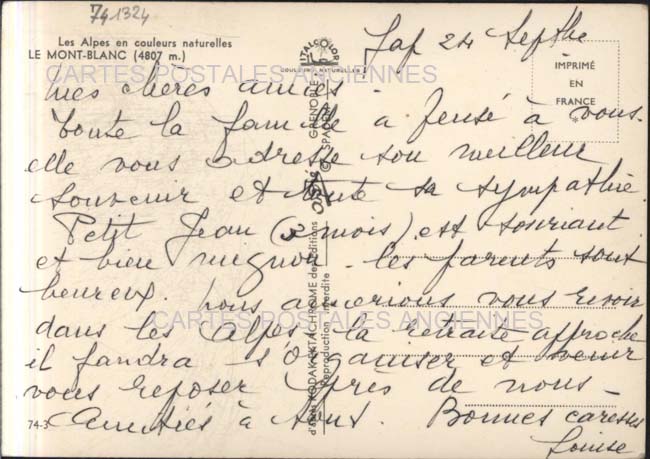 74-1324
Les Alpes en couleurs naturelles
LE MONT-BLANC (4807 m.)
ITALCOLOR
COULEURS NATURELLES
IMPRIMÉ
EN
FRANCE
Gap 24 Septbre
CARTES POSTALES ANCIENNES
Mes chères amies.
Toute la famille a pensé à vous.
elle vous adresse son meilleur
souvenir et toute sa sympathie.
Petit Jean (3 mois) est souriant
et bien mignon. les parents sont
heureux. nous aimerions vous revoir
dans les Alpes. la retraite approche
CARTES POSTALES ANCIENNES
il faudra s'organiser et venir
vous reposer près de nous.
Amitiés à tous. Bonnes caresses
Louise
74-3
d'après KODAK EKTACHROME des Éditions
GRENOBLE
Reproduction interdite